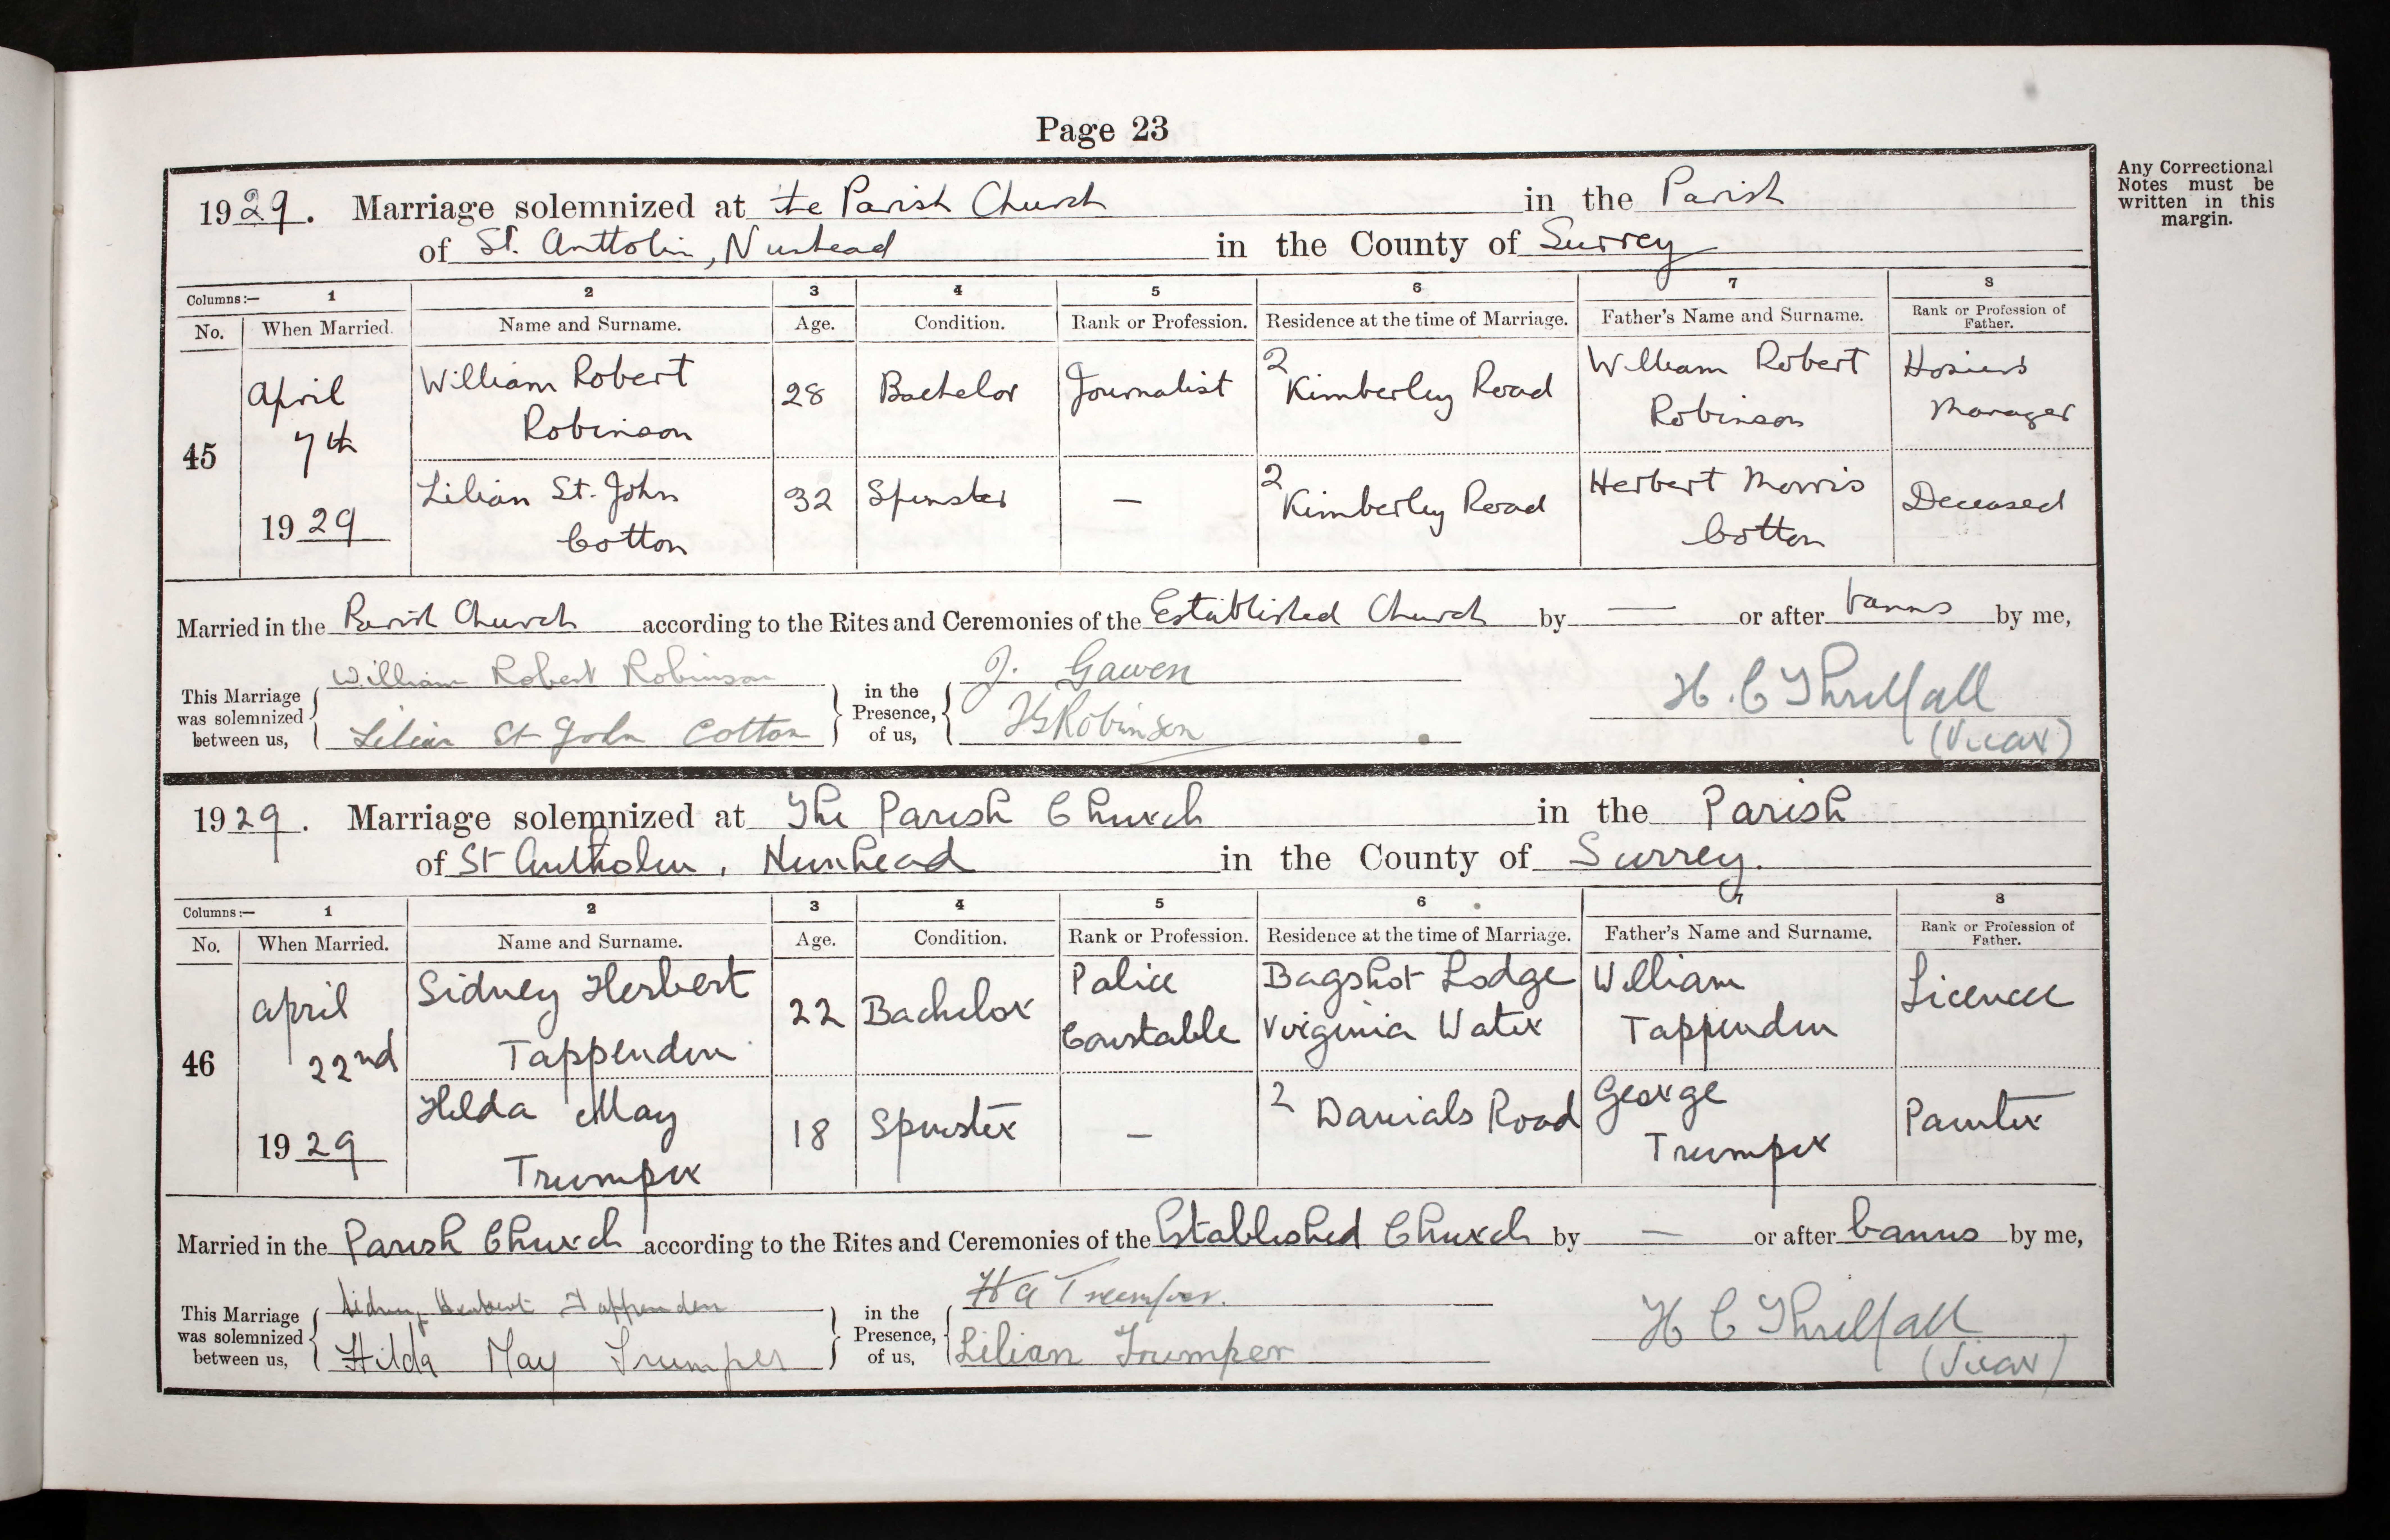 Page 23
Any Correctional
Notes must be
written in this
margin.
1929. Marriage solemnized at the Parish Church in the Parish
of St. Antholin, Nunhead in the County of Surrey
Columns:— 1 2 3 4 5 6 7 8
No. When Married. Name and Surname. Age. Condition. Rank or Profession. Residence at the time of Marriage. Father's Name and Surname. Rank or Profession of Father.
45 April 7th 1929 William Robert Robinson 28 Bachelor Journalist 2 Kimberley Road William Robert Robinson Hosiers Manager
Lilian St. John Cotton 32 Spinster — 2 Kimberley Road Herbert Morris Cotton Deceased
Married in the Parish Church according to the Rites and Ceremonies of the Established Church by — or after banns by me,
This Marriage was solemnized between us, William Robert Robinson in the Presence, of us, J. Gawen
Lilian St John Cotton Robinson
H. C Threlfall
(Vicar)
1929. Marriage solemnized at The Parish Church in the Parish
of St Antholin, Nunhead in the County of Surrey.
Columns:— 1 2 3 4 5 6 7 8
No. When Married. Name and Surname. Age. Condition. Rank or Profession. Residence at the time of Marriage. Father's Name and Surname. Rank or Profession of Father.
46 April 22nd 1929 Sidney Herbert Tappenden 22 Bachelor Police Constable Bagshot Lodge Virginia Water William Tappenden Licencee
Hilda May Trumper 18 Spinster — 2 Danials Road George Trumper Painter
Married in the Parish Church according to the Rites and Ceremonies of the Established Church by — or after banns by me,
This Marriage was solemnized between us, Sidney Herbert Tappenden in the Presence, of us, H A Trumper.
Hilda May Trumper Lilian Trumper
H C Threlfall
(Vicar)